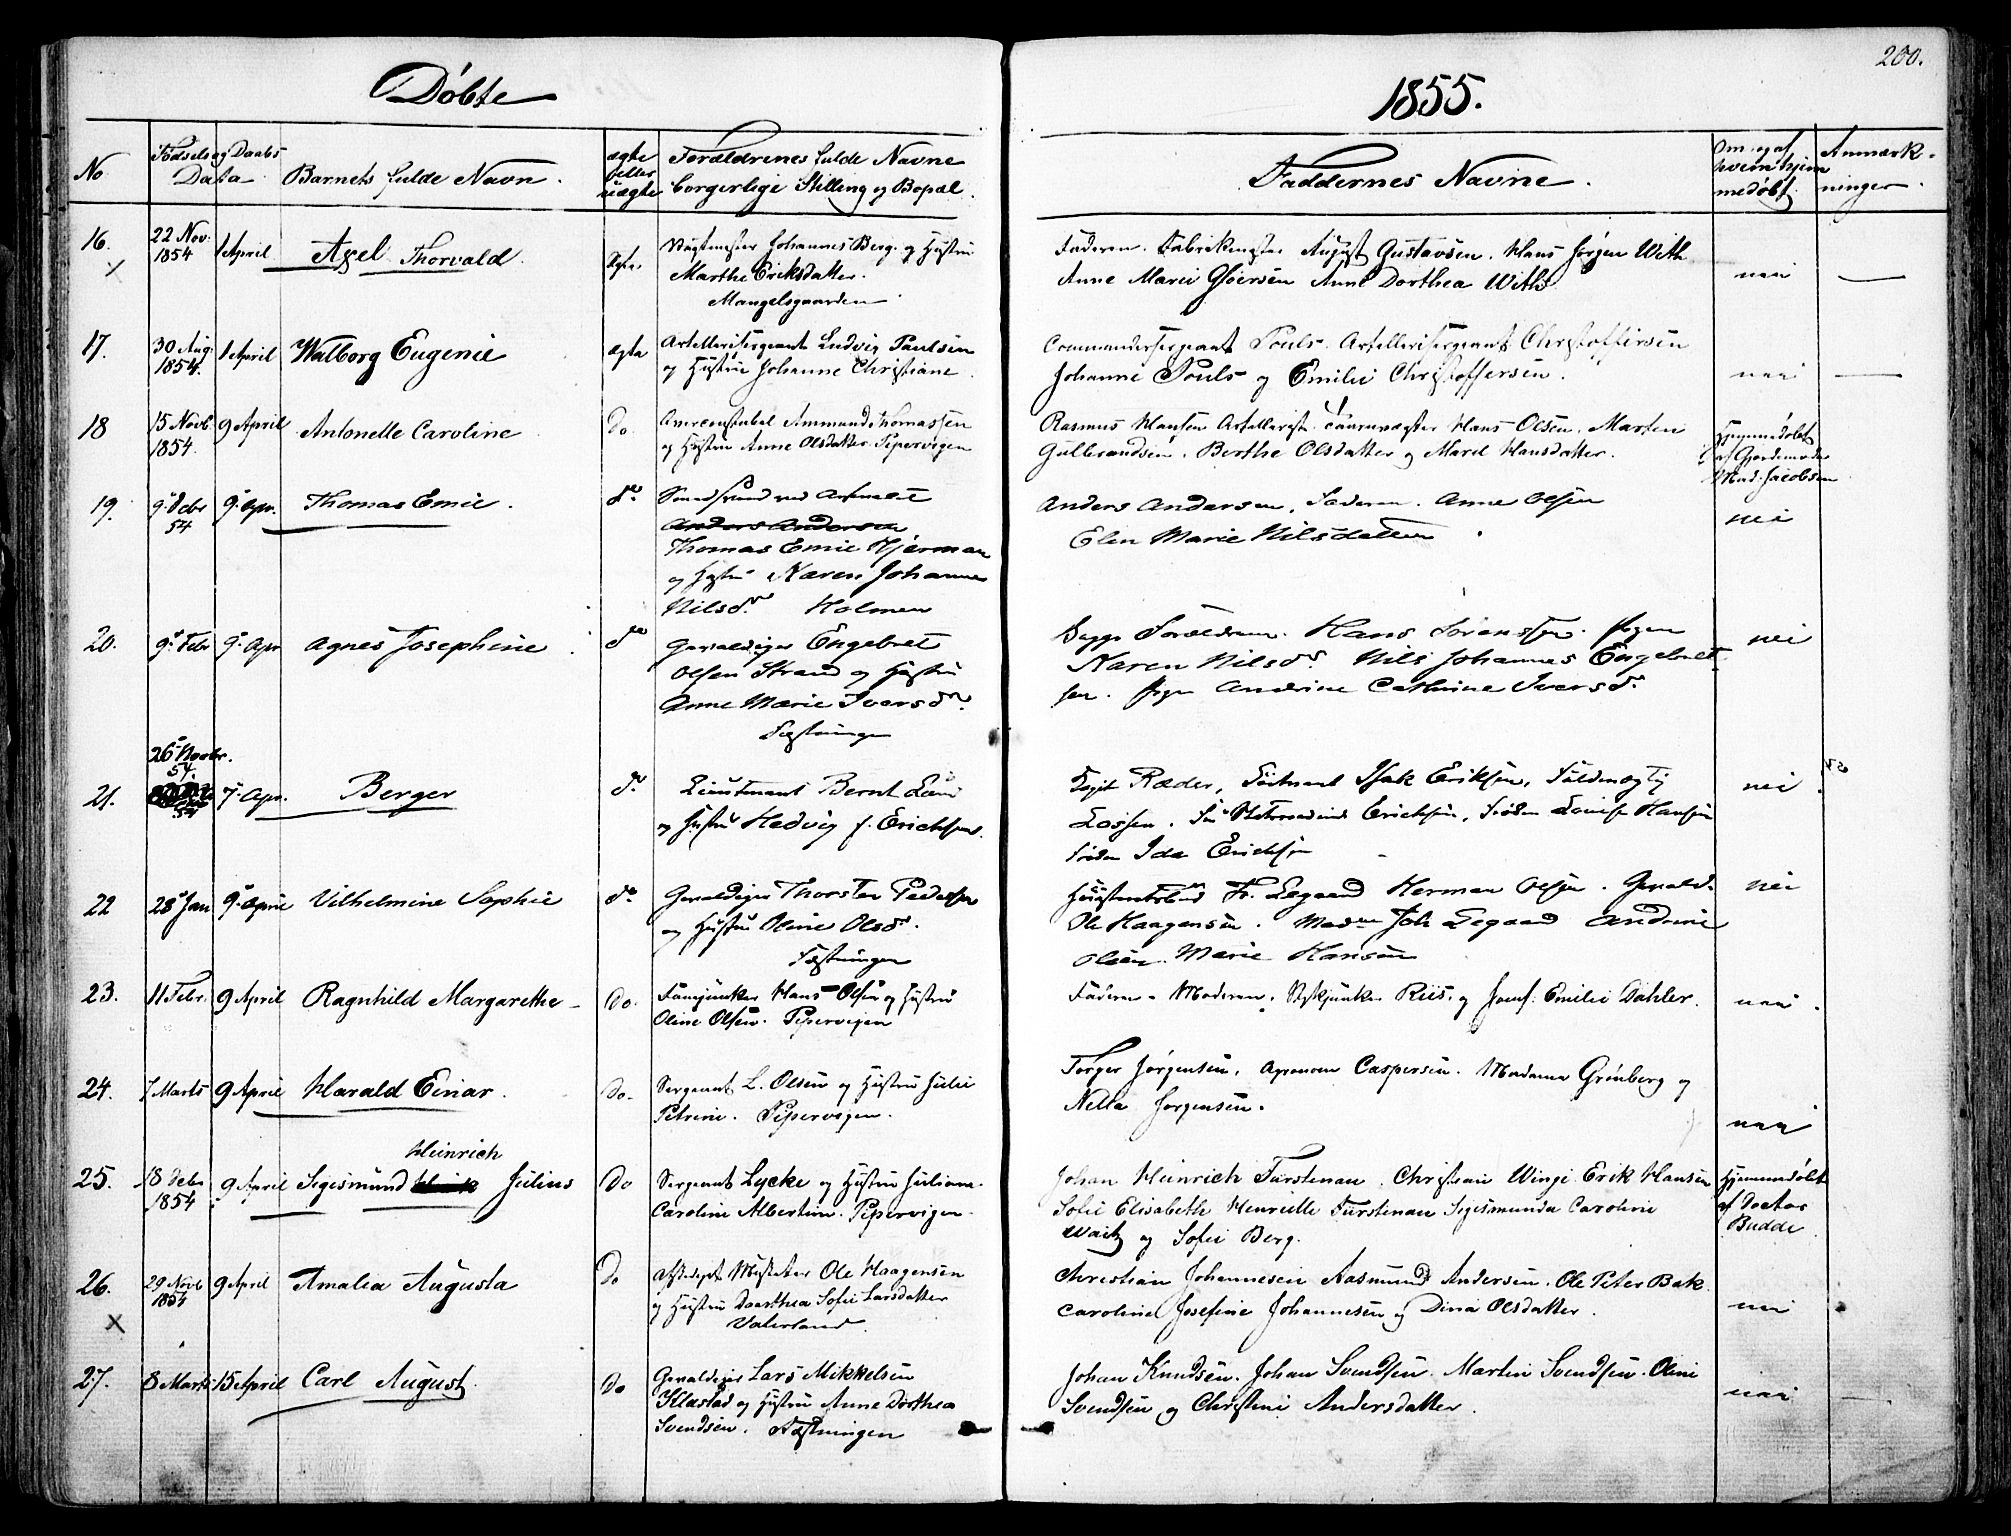 200.
Døbte
1855.
No
Fødsels og Daabs
Data
Barnets fulde Navn.
ægte
eller
uægte
Forældrenes fulde Navne
borgerlige Stilling og Bopæl.
Faddernes Navne.
Om og af
hvem hjem
medøbt.
Anmærk-
ninger.
16.
22 Nov:
1854
1 April
Axel Thorvald.
Ægte.
Vagtmester Johannes Berg. og Hustru
Marthe Eriksdatter.
Mangelsgaarden
Faderen. Fabrikmester August Gustavsen. Hans Jørgen With
Anne Marie Anne Dorthea With
nei
17.
30 Aug:
1854.
1 April
Walborg Eugenie
ægte
Artellerisergeant Ludvig Paulsen
og Hustru Johanne Christiane.
Commandersergeant Pouls. Artellerisergeant Christoffersen
Johanne Pouls og Emilie Christoffersen.
nei
18
15 Novb
1854.
9 April
Antonette Caroline
Do
Ammund Thomassen
og Hustru Anne Olsdatter Pipervigen
Rasmus Hansen Artellerist. Hans Olsen. Morten
Gulbrandsen. Berthe Olsdatter og Marie Hansdatter.
Hjemmedøbt
af Gjordemoder
Mad. Jacobsen
19.
9 Febr
54
9 Apr.
Thomas Emil.
do
Smedsvend ved Arsenalet
Anders Andersen
Thomas Emil Hjerman
og Hustru Karen Johanne
Nilsdr. Holmen
Anders Andersen, Faderen. Anne Olsen
Elen Marie Nilsdatter.
nei
20.
9 Febr
9 Apr
Agnes Josephine
do
Gevaldiger Engebret
Olsen Strand og Hustru
Anne Marie Iversdr.
Fæstningen
Begge Forældrene. Hans Sørenssen. Pigen
Karen Nilsdr. Nils Johannes Engebret-
sen. Pigen Andrine Cathrine Iversdr.
nei
26 Novbr.
54.
21.
54
7 Apr.
Berger
do
Lieutenant Bernt Lund
og Hustru Hedvig f. Erichsen.
Capt Ræder, Isak Eriksen, Fuldmægtig
Lossen. Erichsen, Frøken Louise Hansen
Frøken Ida Erichsen
nei
22
28 Jan
9 April
Vilhelmine Sophie
do
Gevaldiger Thorsten Pedersen
og Hustru Oline Olsdr.
Fæstningen
Fr. Legaard Herman Olsen. Gevald.
Ole Haagensen. Madme Joh Legaard Andrine
Olsen. Marie Hansen
nei
23.
11 Febr.
9 April
Ragnhild Margarethe
Do.
Fanejunker Hans Olsen og Hustru
Oline Olsen. Pipervigen
Faderen. Moderen. Stykjunker Riis. og Jomf: Emilie Dahler.
nei.
24.
7 Marts
9 April
Harald Einar.
Do.
Sergeant L. Olsen og Hustru Julie
Petrine. Pipervigen.
Torger Jørgensen. Caspersen. Madame Grønberg og
Nella Jørgensen.
nei
Heinrich
25.
18 Febr
1854
9 April
Sigismund Julius
Do
Sergeant Lycke og Hustru Juliane
Caroline Albertine. Pipervigen.
Johan Heinrich Fürstenau. Christian Winge. Erik Hansen
Sofie Elisabeth Henriette Fürstenau Sigismunda Caroline
Waitz og Sofie Berg.
Hjemmedøbt
af Doctor
Budde
26.
29 Novb
1854
9 April
Amalia Augusta
Do
Ole Haagensen
og Hustru Daarthea Sofie Larsdatter
Vaterland.
Christian Johannesen Aasmund Andersen. Ole Peter Bak.
Caroline Josefine Johannesen og Dina Olsdatter.
nei
27.
8 Marts
15 April
Carl August.
Do
Gevaldiger Lars Mikkelsen
Klæstad og Hustru Anne Dorthea
Svendsen. Fæstningen
Johan Knudsen. Johan Svendsen. Martin Svendsen. Oline
Svendsen og Christine Andersdatter.
nei